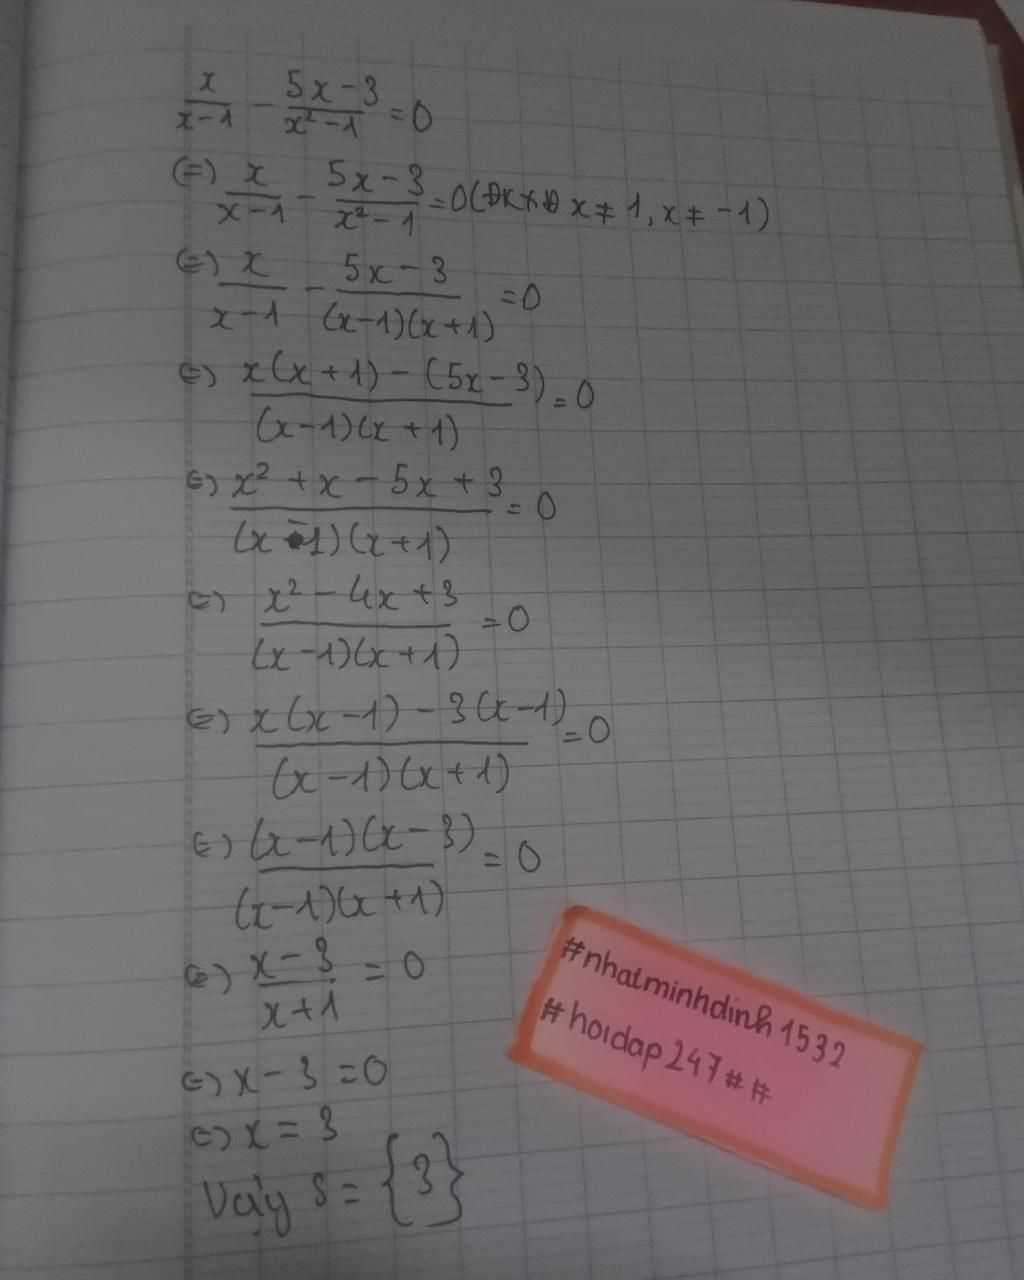 x/(x-1) - (5x-3)/(x²-1) = 0
(=) x/(x-1) - (5x-3)/(x²-1) = 0 ( x ≠ 1, x ≠ -1)
(=) x/(x-1) - (5x-3)/((x-1)(x+1)) = 0
(=) (x(x+1) - (5x-3))/((x-1)(x+1)) = 0
(=) (x² + x - 5x + 3)/((x-1)(x+1)) = 0
(=) (x² - 4x + 3)/((x-1)(x+1)) = 0
(=) (x(x-1) - 3(x-1))/((x-1)(x+1)) = 0
(=) ((x-1)(x-3))/((x-1)(x+1)) = 0
(=) (x-3)/(x+1) = 0
(=) x - 3 = 0
(=) x = 3
Vậy S = {3}
#nhatminhdinh1532
#hoidap247##